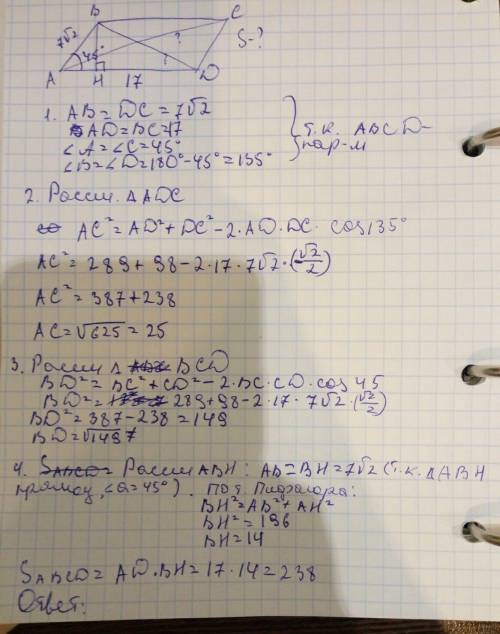 B C
7√2 45° ? ? S-?
A H 17 D
1. AB = DC = 7√2
AD = BC = 17
∠A = ∠C = 45°
∠B = ∠D = 180° - 45° = 135°
т.к. ABCD-
пар-м
2. Рассм. △ADC
AC² = AD² + DC² - 2·AD·DC· cos135°
AC² = 289 + 98 - 2·17·7√2·(-√2/2)
AC² = 387 + 238
AC = √625 = 25
3. Рассм △ BCD
BD² = BC² + CD² - 2·BC·CD·cos 45
BD² = 289 + 98 - 2·17·7√2·(√2/2)
BD² = 387 - 238 = 149
BD = √149
4. Рассм ABH: AB = BH = 7√2 (т.к. △ABH
прямоу, ∠a = 45°). По т. Пифагора:
BH² = AB² + AH²
BH² = 196
BH = 14
SABCD = AD·BH = 17·14 = 238
Ответ: